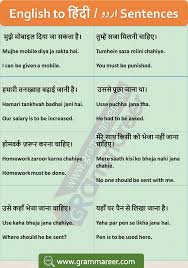 English to हिंदी / اردو Sentences
मुझे मोबाइल दिया जा सकता है।
Mujhe mobile diya ja sakta hai.
I can be given a mobile.
तुम्हें सजा मिलनी चाहिए।
Tumhein saza milni chahiye.
You must be punished.
हमारी तनख्वाह बढ़ाई जानी है।
Hamari tankhvah badhai jani hai.
Our salary is to be increased.
उससे पूछा जाना था।
Usse puchha jana tha.
He had to be asked.
होमवर्क ज़रूर करना चाहिए।
Homework zaroor karna chahiye.
Homework must be done.
मेरे साथ किसी को भेजा नहीं जाना चाहिए.
Mere saath kisi ko bheja nahi jana chahie.
No one should be sent with me.
उसे कहाँ भेजा जाना चाहिए?
Use kaha bheja jana chahye.
Where should he be sent?
यहाँ पर पेन से लिखा जाना है।
Yaha par pen se likha jana hai.
Pen is to be used here.
www.grammareer.com